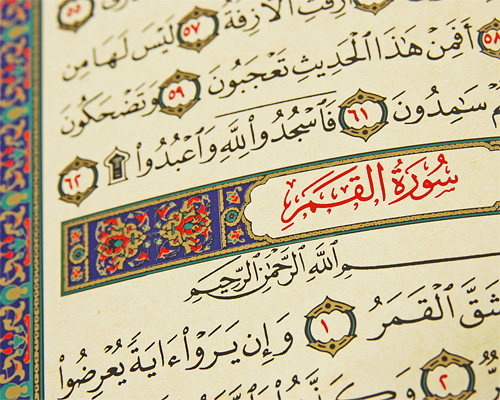 ٥٥ أَزِفَتِ ٱلْأَزِفَةُ ٥٧ لَيْسَ لَهَا مِن
٥٨ أَفَمِنْ هَٰذَا ٱلْحَدِيثِ تَعْجَبُونَ ٥٩ وَتَضْحَكُونَ
سَٰمِدُونَ ٦١ فَٱسْجُدُوا۟ لِلَّهِ وَٱعْبُدُوا۟ ۩ ٦٢
سُورَةُ القَمَرِ
ٱللَّهِ ٱلرَّحْمَٰنِ ٱلرَّحِيمِ
ٱلْقَمَرُ ١ وَإِن يَرَوْا۟ ءَايَةً يُعْرِضُوا۟
٢